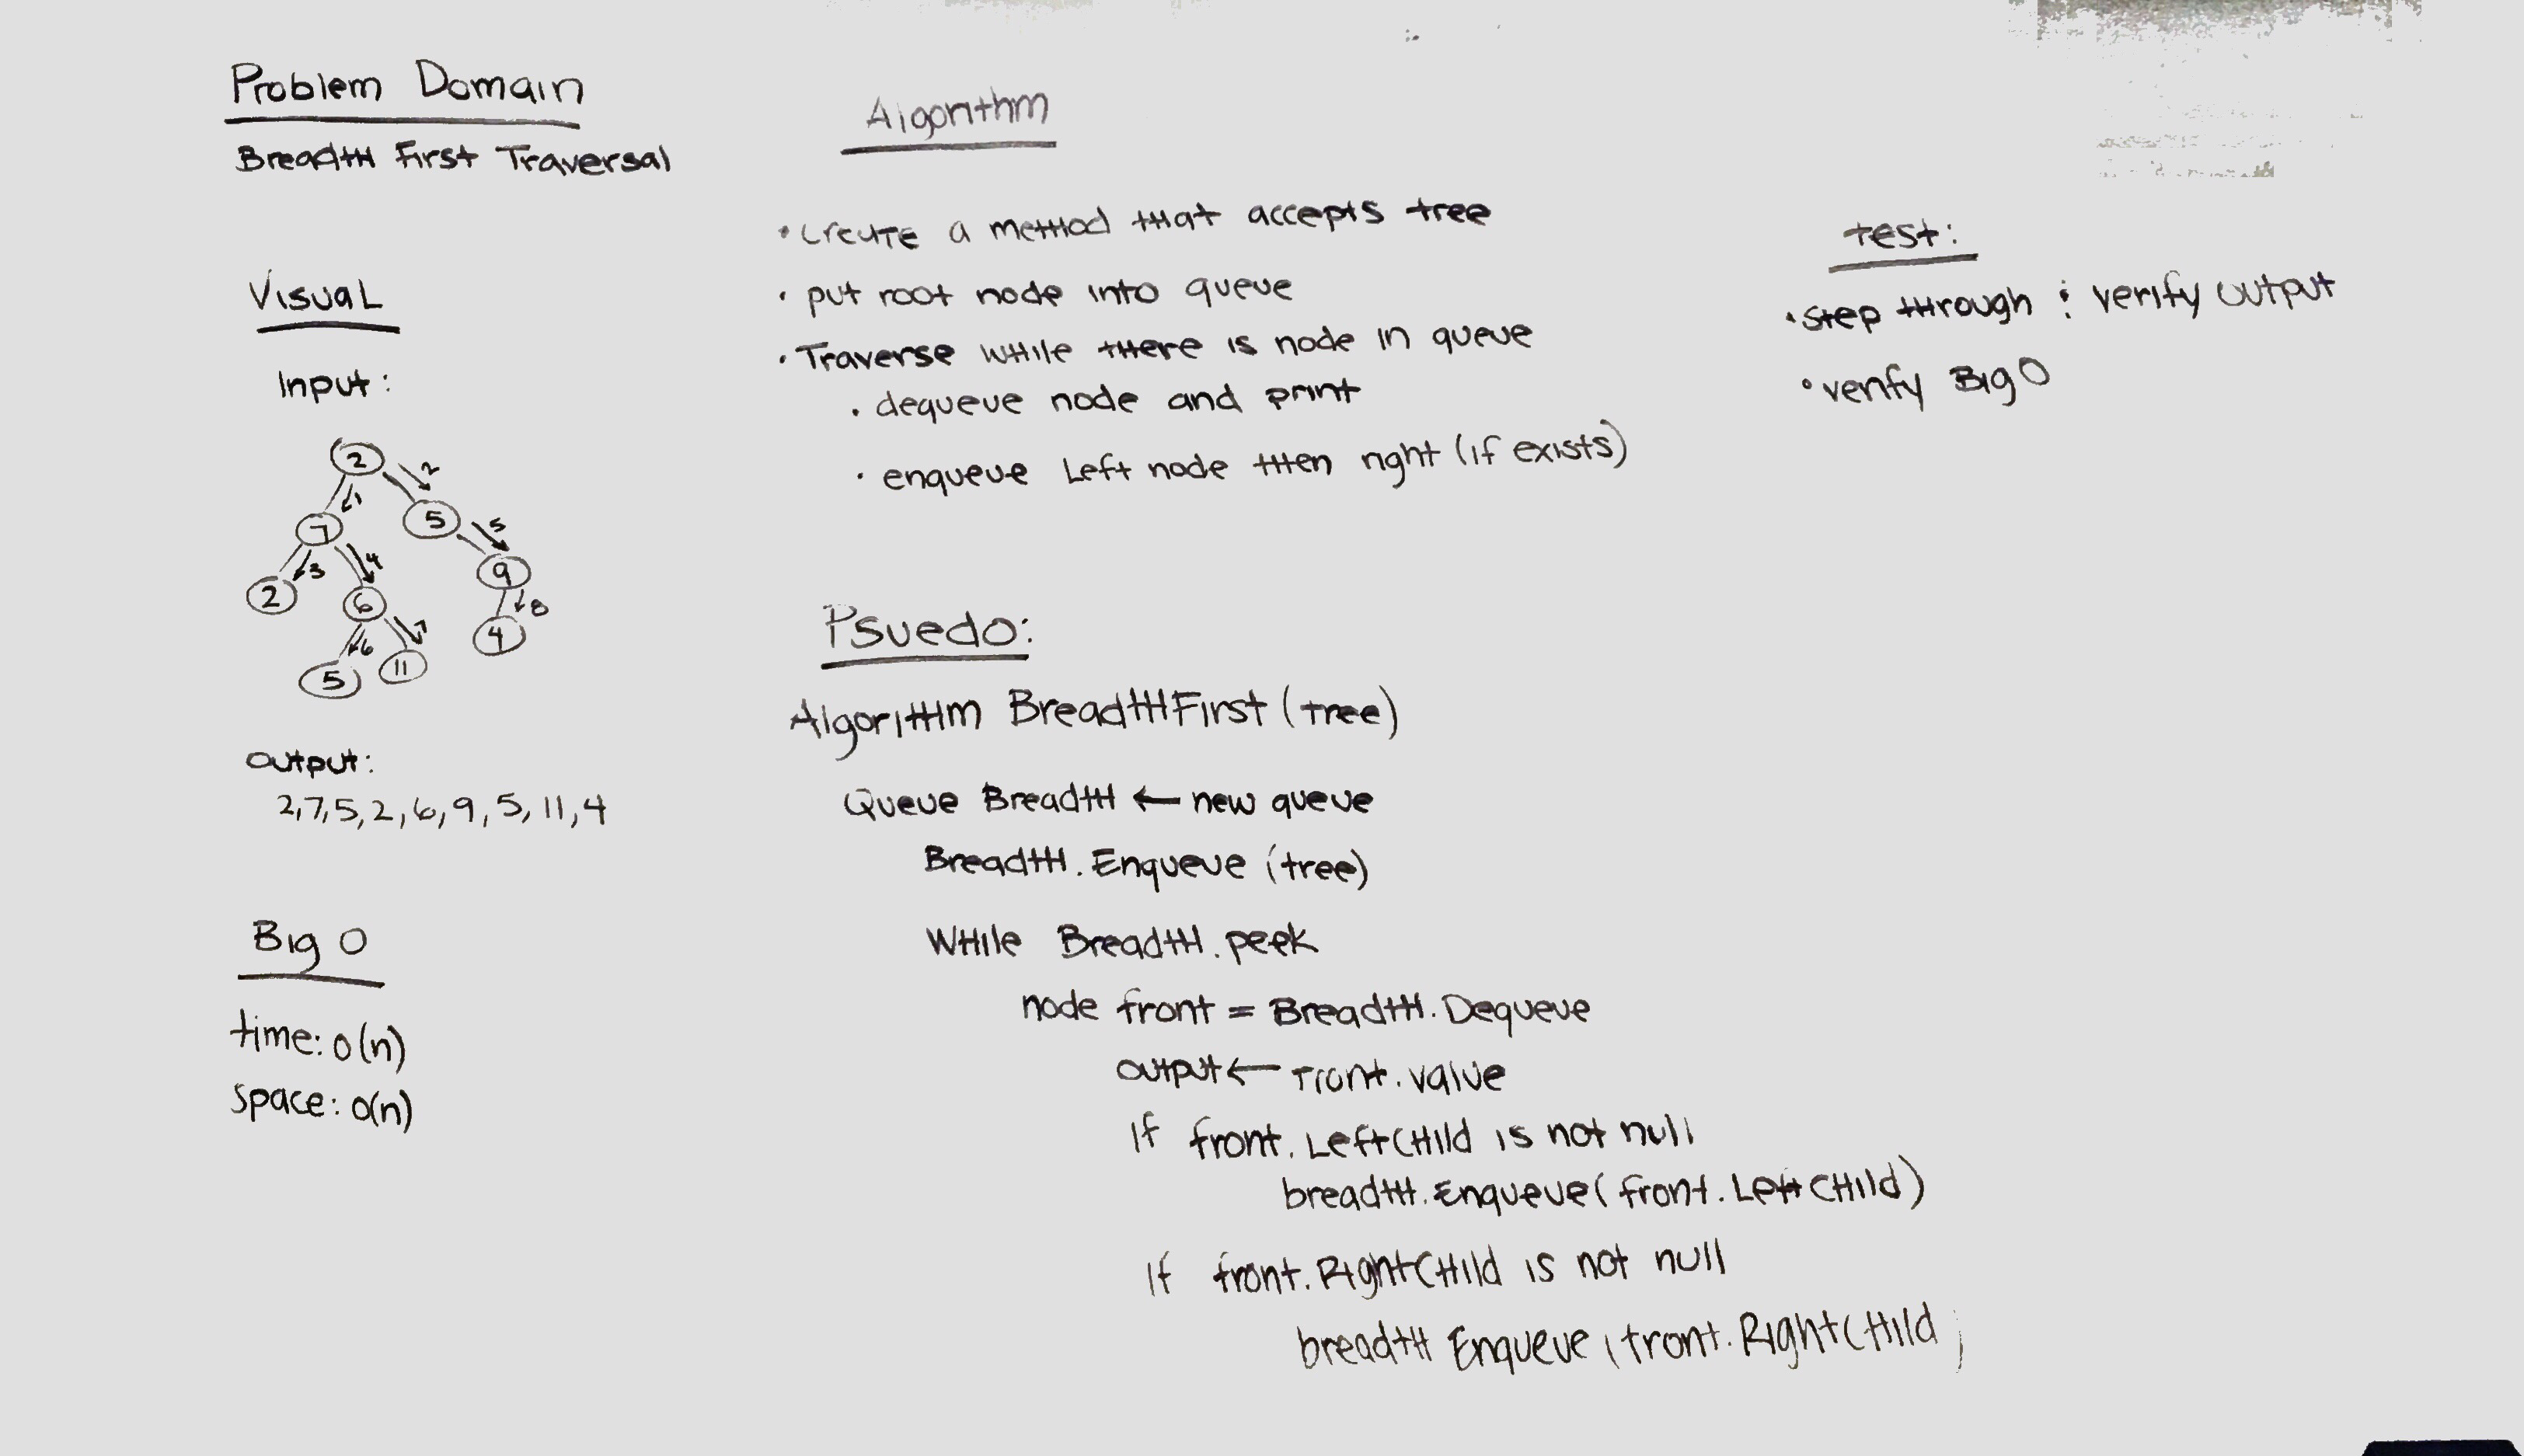 Problem Domain
Breadth First Traversal
Visual
Input:
2
2
1
7
5
5
3
4
9
2
6
8
4
6
7
5
11
Output:
2,7,5,2,6,9,5,11,4
Big O
time: O(n)
Space: O(n)
Algorithm
• Create a method that accepts tree
• put root node into queue
• Traverse while there is node in queue
• dequeue node and print
• enqueue Left node then right (if exists)
Psuedo:
Algorithm BreadthFirst (tree)
Queue Breadth ← new queue
Breadth.Enqueue (tree)
While Breadth.peek
node front = Breadth.Dequeue
output ← front.value
If front.LeftChild is not null
breadth.Enqueue(front.LeftChild)
If front.RightChild is not null
breadth Enqueue (front.RightChild)
test:
• step through & verify output
• verify Big O